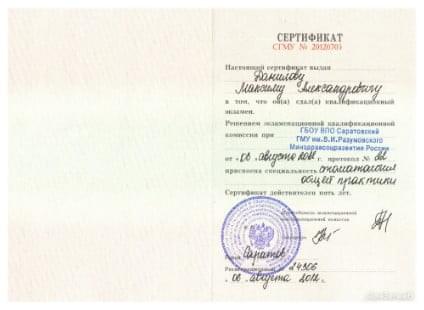 СЕРТИФИКАТ
СГМУ № 20120703
Настоящий сертификат выдан
Данилову
Максиму Александровичу
в том, что он(а) сдал(а) квалификационный
экзамен.
Решением экзаменационной квалификационной
комиссии при
ГБОУ ВПО Саратовский
ГМУ им.В.И.Разумовского
Минздравсоцразвития России
от «08» августа 2012 г. протокол №
присвоена специальность стоматология
общей практики
Сертификат действителен пять лет.
Председатель экзаменационной
квалификационной комиссии
Город Саратов
Регистрационный № 14306
«08» августа 2012 г.